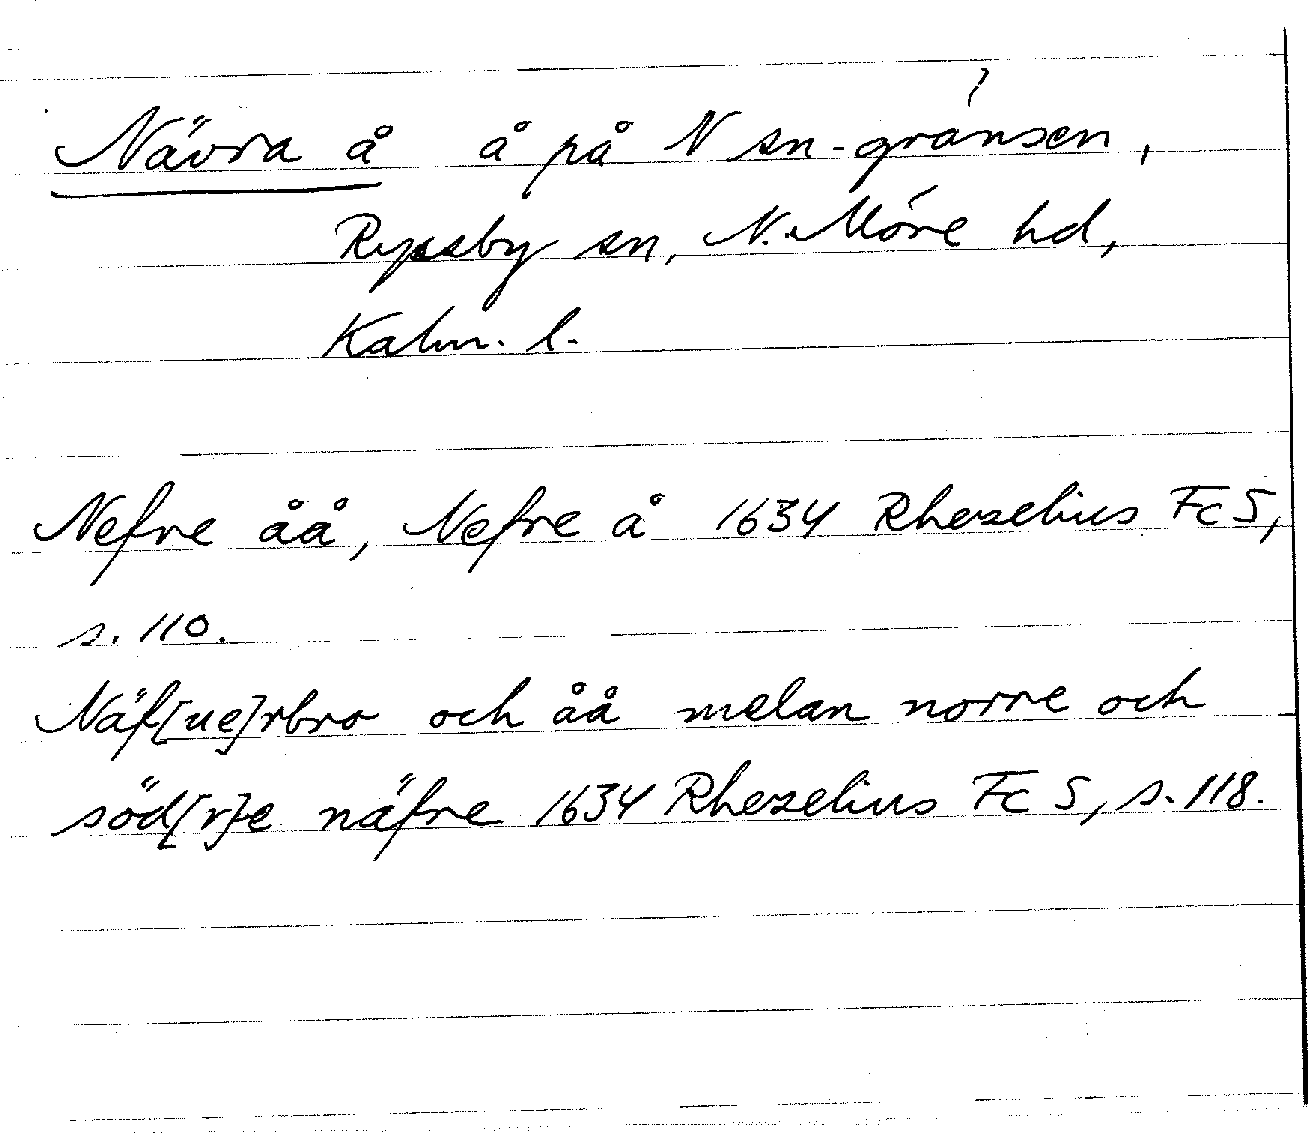 Nävra å å på N sn-gränsen,
Ryssby sn, N. Möre hd,
Kalm. l.
Nefre åå, Nefre å 1634 Rhezelius Fc 5,
s. 110.
Näf[ue]rbro och åå melan norre och
söd[r]e näfre 1634 Rhezelius Fc 5, s. 118.